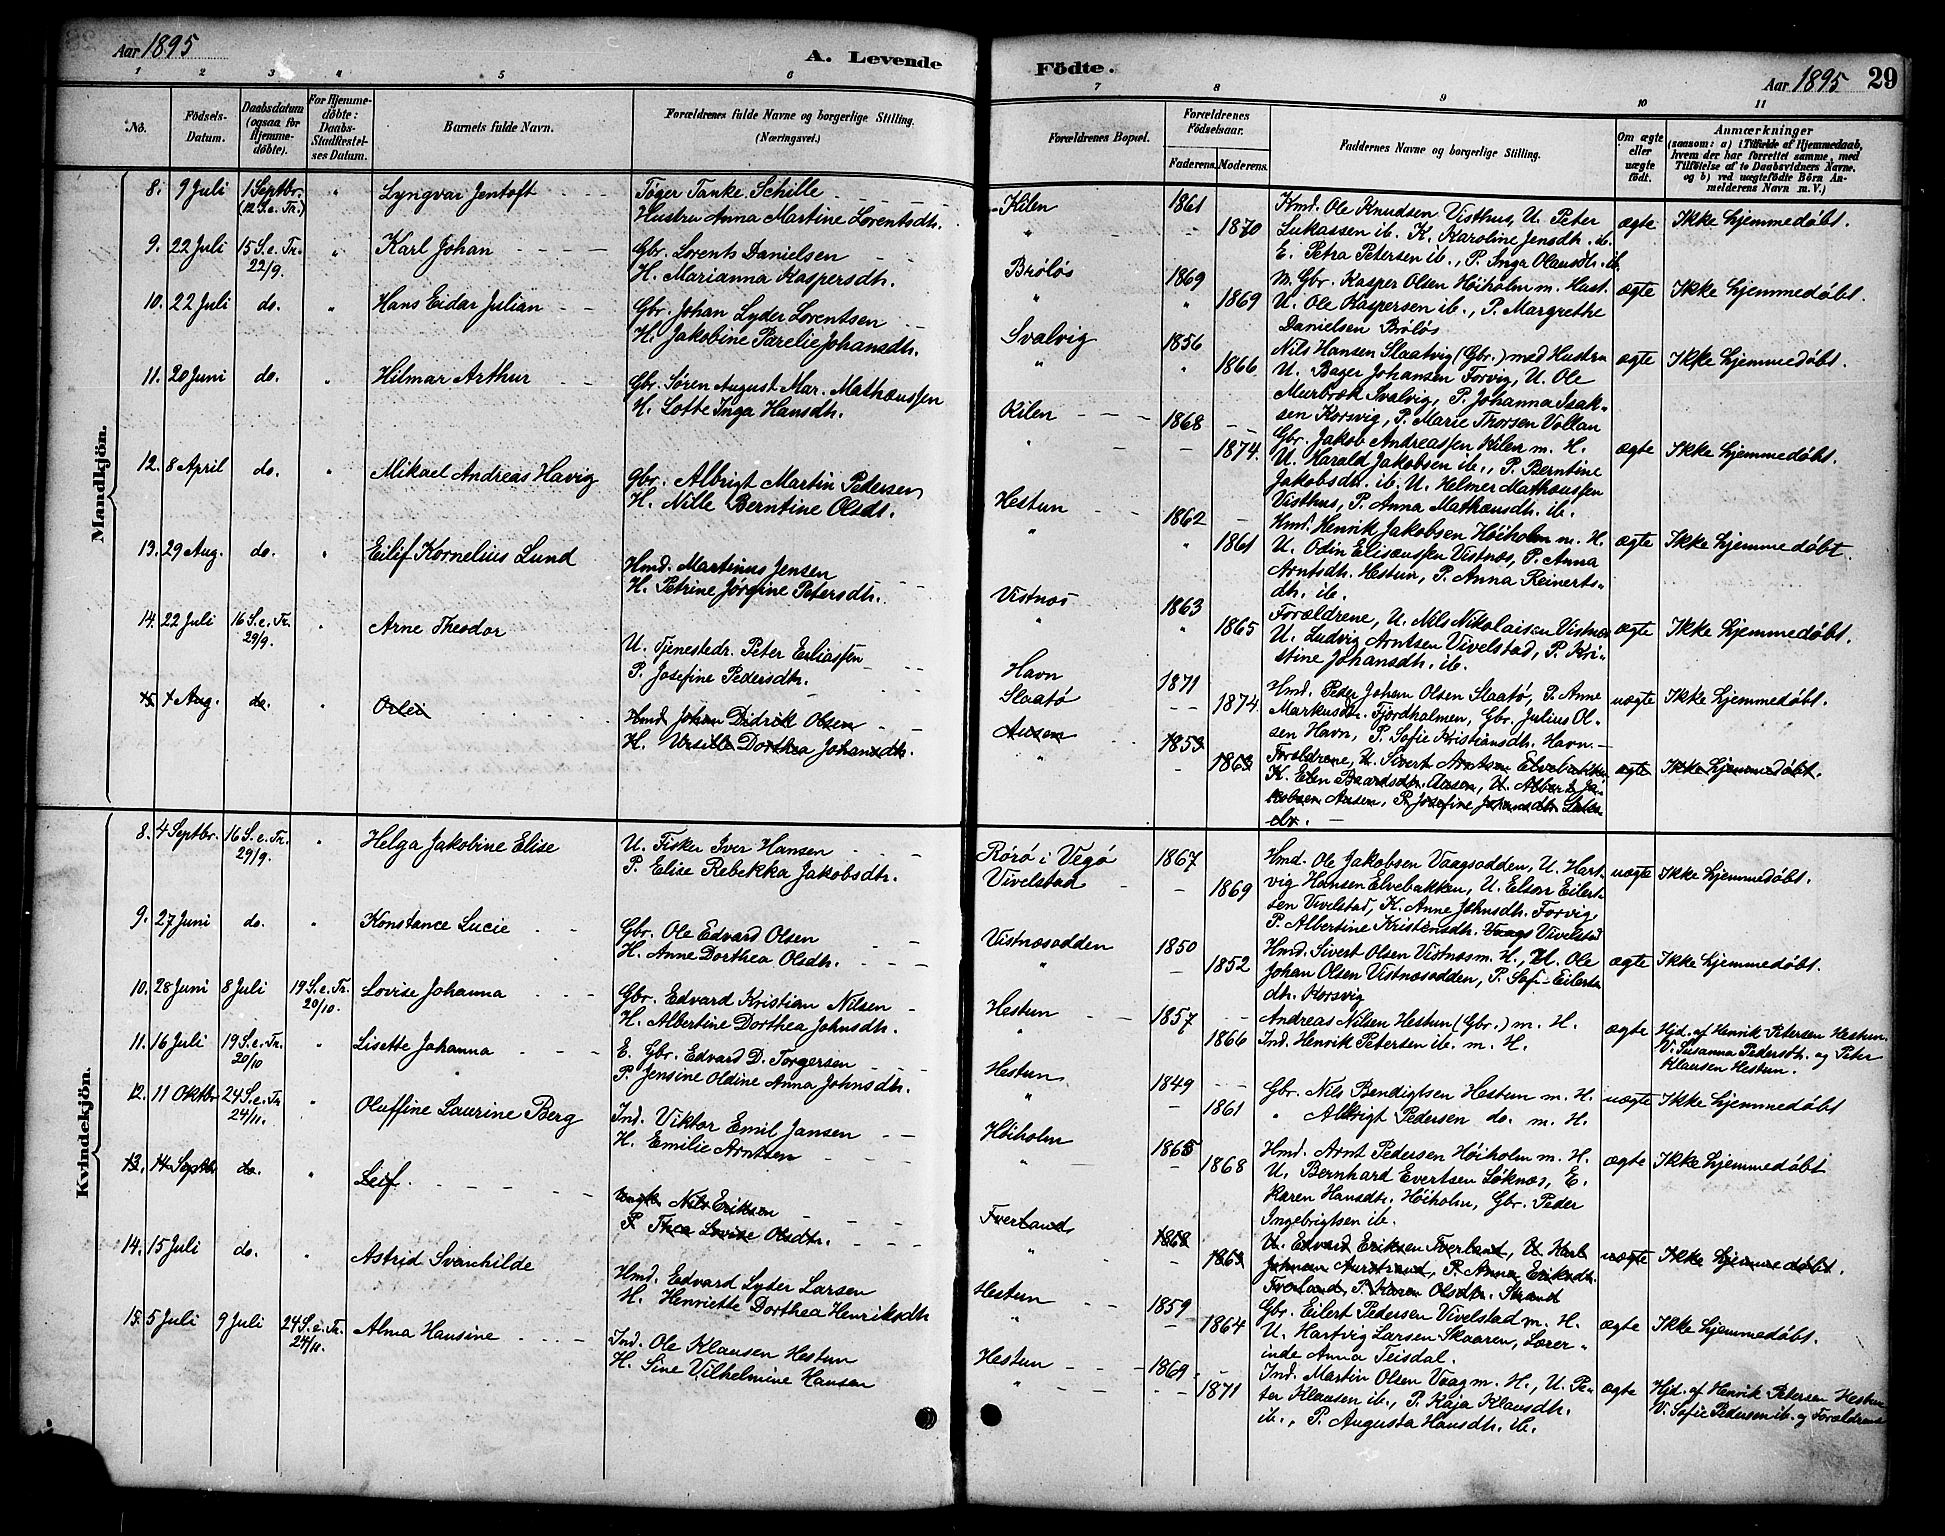 Aar 1895
A. Levende
1 2 3 4 5 6
No.
Fødsels-
Datum.
Daabsdatum
(ogsaa for
Hjemme-
døbte).
For Hjemme-
døbte:
Daabs-
Stadfæstel-
ses Datum.
Barnets fulde Navn.
Forældrenes fulde Navne og borgerlige Stilling.
(Næringsvei.)
Mandkjön.
8. 9 Juli 1 Septbr. (12 S. e. Tr.) " Lyngvar Jentoft
Tøger Tanke Schille
Hustru Anna Martine Lorentsdh.
9. 22 Juli 15 S. e. Tr. 22/9. " Karl Johan
Gbr. Lorents Danielsen
H. Marianna Kaspersdh.
10. 22 Juli do. " Hans Eidar Julian
Gbr. Johan Lyder Lorentsen
H. Jakobine Parelie Johansdh.
11. 20 Juni do. " Hilmar Arthur
Gbr. Søren August Mar. Mathæussen
H. Lotte Inga Hansdh.
12. 8 April do. " Mikael Andreas Havig
Gbr. Albrigt Martin Pedersen
H. Nille Berntine Olsdt.
13. 29 Aug. do. " Eilif Kornelius Lund
Hmd. Martinus Jensen
H. Petrine Jørgine Petersdh.
14. 22 Juli 16 S. e. Tr. 29/9. " Arne Theodor
U. Tjenestedr. Peter Eliassen
P. Josefine Pedersdh.
15. 4 Aug. do. " Orlei
Hmd. Johan Didrik Olsen
H. Ursille Dorthea Johansdh.
Kvindekjön.
8. 4 Septbr. 16 S. e. Tr. 29/9. " Helga Jakobine Elise
U. Fisker Iver Hansen
P. Elise Rebekka Jakobsdh.
9. 27 Juni do. " Konstance Lucie
Gbr. Ole Edvard Olsen
H. Anne Dorthea Olsdh.
10. 28 Juni 8 Juli 19 S. e. Tr. 20/10. Lovise Johanna
Gbr. Edvard Kristian Nilsen
H. Albertine Dorthea Johnsdh.
11. 16 Juli 19 S. e. Tr. 20/10 " Lisette Johanna
E. Gbr. Edvard D. Torgersen
P. Jensine Oldine Anna Johnsdh.
12. 11 Oktbr 24 S. e. Tr. 24/11. " Oluffine Laurine Berg
Ind. Viktor Emil Jansen
H. Emilie Arntsen
13. 14 Septb. do. " Leif.
Ungk. Nils Eriksen
P. Thea Lovise Olsdtr.
14. 15 Juli do. " Astrid Svanhilde
Hmd. Edvard Lyder Larsen
H. Henriette Dorthea Henriksdh
15. 5 Juli 9 Juli 24 S. e. Tr. 24/11. Alma Hansine
Ind. Ole Klausen Hestun
H. Sine Vilhelmine Hansen
Födte.
Aar 1895
29
7 8 9 10 11
Forældrenes Bopæl.
Forældrenes
Fødselsaar.
Faderens. Moderens.
Faddernes Navne og borgerlige Stilling.
Om ægte
eller
uægte
født.
Anmærkninger
(saasom: a) i Tilfælde af Hjemmedaab,
hvem der har forrettet samme, med
Tilføielse af to Daabsvidners Navne.
og b) ved uægtefødte Börn An-
melderens Navn m. V.)
Kilen 1861 Kmd. Ole Knudsen Visthus, U. Peter
" 1870 Lukassen ib. K. Karoline Jensdh. ib. ægte Ikke hjemmedøbt.
E. Petra Petersen ib., P. Inga Olausdh. ib.
Brøløs 1869 M. Gbr. Kasper Olsen Höiholm m. Hust.
" 1869 U. Ole Kaspersen ib., P. Margrethe ægte Ikke hjemmedøbt.
Danielsen Brøløs
Svalvig 1856 Nils Hansen Slaatvig (Gbr.) med Hustru
" 1866 U. Bager Johansen Forvig, U. Ole ægte Ikke hjemmedøbt.
Murbræk Svalvig, P. Johanna Isak-
sen Korsvig, P. Marie Thorsen Vollan
Kilen 1868 Gbr. Jakob Andreassen Kilen m. H.
" 1874. U. Harald Jakobsen ib., P. Berntine ægte Ikke hjemmedøbt.
Jakobsdh. ib. U. Helmer Mathæussen
Visthus, P. Anna Mathæusdh. ib.
Hestun 1862 Hmd. Henrik Jakobsen Höiholm m. H.
" 1861 U. Odin Elisæussen Vistnes, P. Anna ægte Ikke hjemmedøbt.
Arntsdh. Hestun, P. Anna Reinerts-
dh. ib.
Vistnes 1863 Forældrene, U. Nils Nikolaisen Vistnes
" 1865 U. Ludvig Arntsen Vivelstad, P. Kri- ægte Ikke hjemmedøbt.
stine Johansdh. ib.
Havn 1871 Hmd. Peder Johan Olsen Slaatø, P. Anne
Slaatø 1874 Markusdtr. Fjordholmen, Gbr. Julius Ol- uægte Ikke hjemmedøbt.
sen Havn, P. Sofie Kristiansdh. Havn.
Ausen 1853 Forældrene, U. Sivert Arntsen Elvebakken
" 1863 K. Elen Baardsdtr. Ausen, U. Albert Ja- ægte Ikke hjemmedøbt.
kobsen Ausen, P. Josefine Johansdtr.
Rørø i Vegø 1867 Hmd. Ole Jakobsen Vaagsodden, U. Hart-
Vivelstad 1869 vig Hansen Elvebakken, U. Elsor Eilert- uægte Ikke hjemmedøbt.
sen Vivelstad, K. Anne Johnsdh. Forvig
P. Albertine Kristensdh. Vaags Vivelstad
Vistnesodden 1850 Hmd. Sivert Olsen Vistnes m. H., U. Ole
" 1852 Johan Olsen Vistnesodden, P. Sofi-Eilerts- ægte Ikke hjemmedøbt.
dh. Korsvig
Hestun 1857 Andreas Nilsen Hestun (Gbr.) m. H.
" 1866 Ind. Henrik Petersen ib. m. H. ægte Hjd. af Henrik Petersen Hestun.
V. Susanna Pedersdh. og Peter
Klausen Hestun.
Hestun 1849 Gbr. Nils Bendigtsen Hestun m. H. uægte Ikke hjemmedøbt
" 1861 " Albrigt Pedersen do. m. H.
Höiholm 1865 Hmd. Arnt Pedersen Höiholm m. H.
" 1868 U. Bernhard Evertsen Søknes, E. ægte Ikke hjemmedøbt
Karen Hansdtr. Höiholm, Gbr. Peder
Ingebrigtsen ib.
Tverland 1868 U. Edvard Eriksen Tverland, U. Karl uægte Ikke hjemmedøbt.
" 1863 Johnsen Aurstrand, P. Anna Eriksdh.
Tverland, P. Karen Olsdtr. Strand
Hestun 1859 Gbr. Eilert Pedersen Vivelstad m. H.
" 1864 U. Hartvig Larsen Skaaren, Lærer- ægte Ikke hjemmedøbt.
inde Anna Teisdal.
Hestun 1869 Ind. Martin Olsen Vaag m. H., U. Pe-
" 1871 ter Klausen ib., P. Kaja Klausdh. ægte Hjd. af Henrik Petersen Hestun
ib., P. Augusta Hansdh. ib. V. Sofie Pedersen ib. og Forældrene